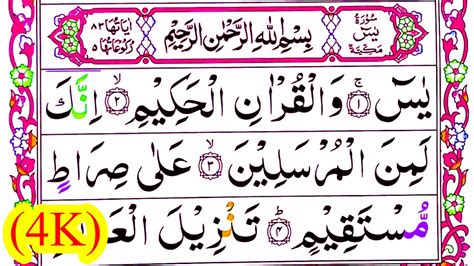 سُوْرَةُ يٰسٓ مَكِّيَّةٌ
بِسْمِ اللهِ الرَّحْمٰنِ الرَّحِيْمِ
اٰيَاتُهَا ٨٣ رُكُوْعَاتُهَا ٥
يٰسٓ ۚ ﴿١﴾ وَالْقُرْاٰنِ الْحَكِيْمِ ۙ ﴿٢﴾ اِنَّكَ
لَمِنَ الْمُرْسَلِيْنَ ۙ ﴿٣﴾ عَلٰى صِرَاطٍ
مُّسْتَقِيْمٍ ؕ ﴿٤﴾ تَنْزِيْلَ
(4K)